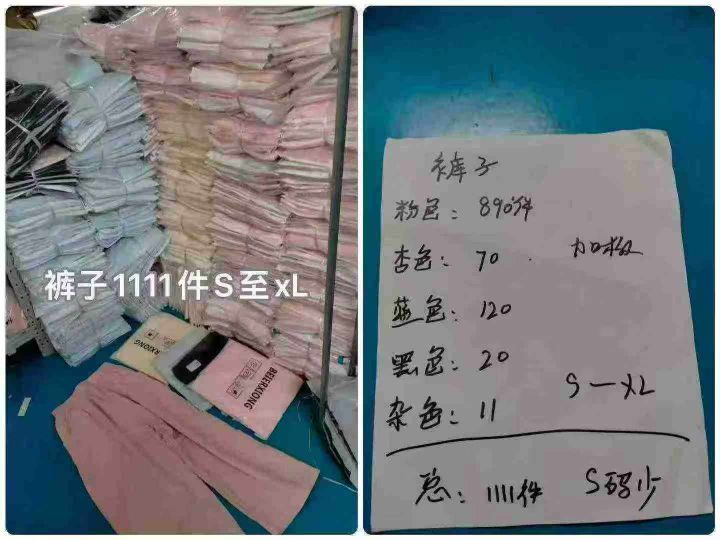 裤子1111件S至xL
BEIERXIONG
BEIERXIONG
裤子
粉色：890件
杏色：70
加板
蓝色：120
黑色：20
杂色：11
S—XL
总：1111件
S码少